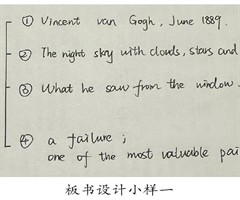 ① Vincent van Gogh, June 1889.
② The night sky with clouds, stars and
③ What he saw from the window.
④ a failure;
one of the most valuable pai
板书设计小样一